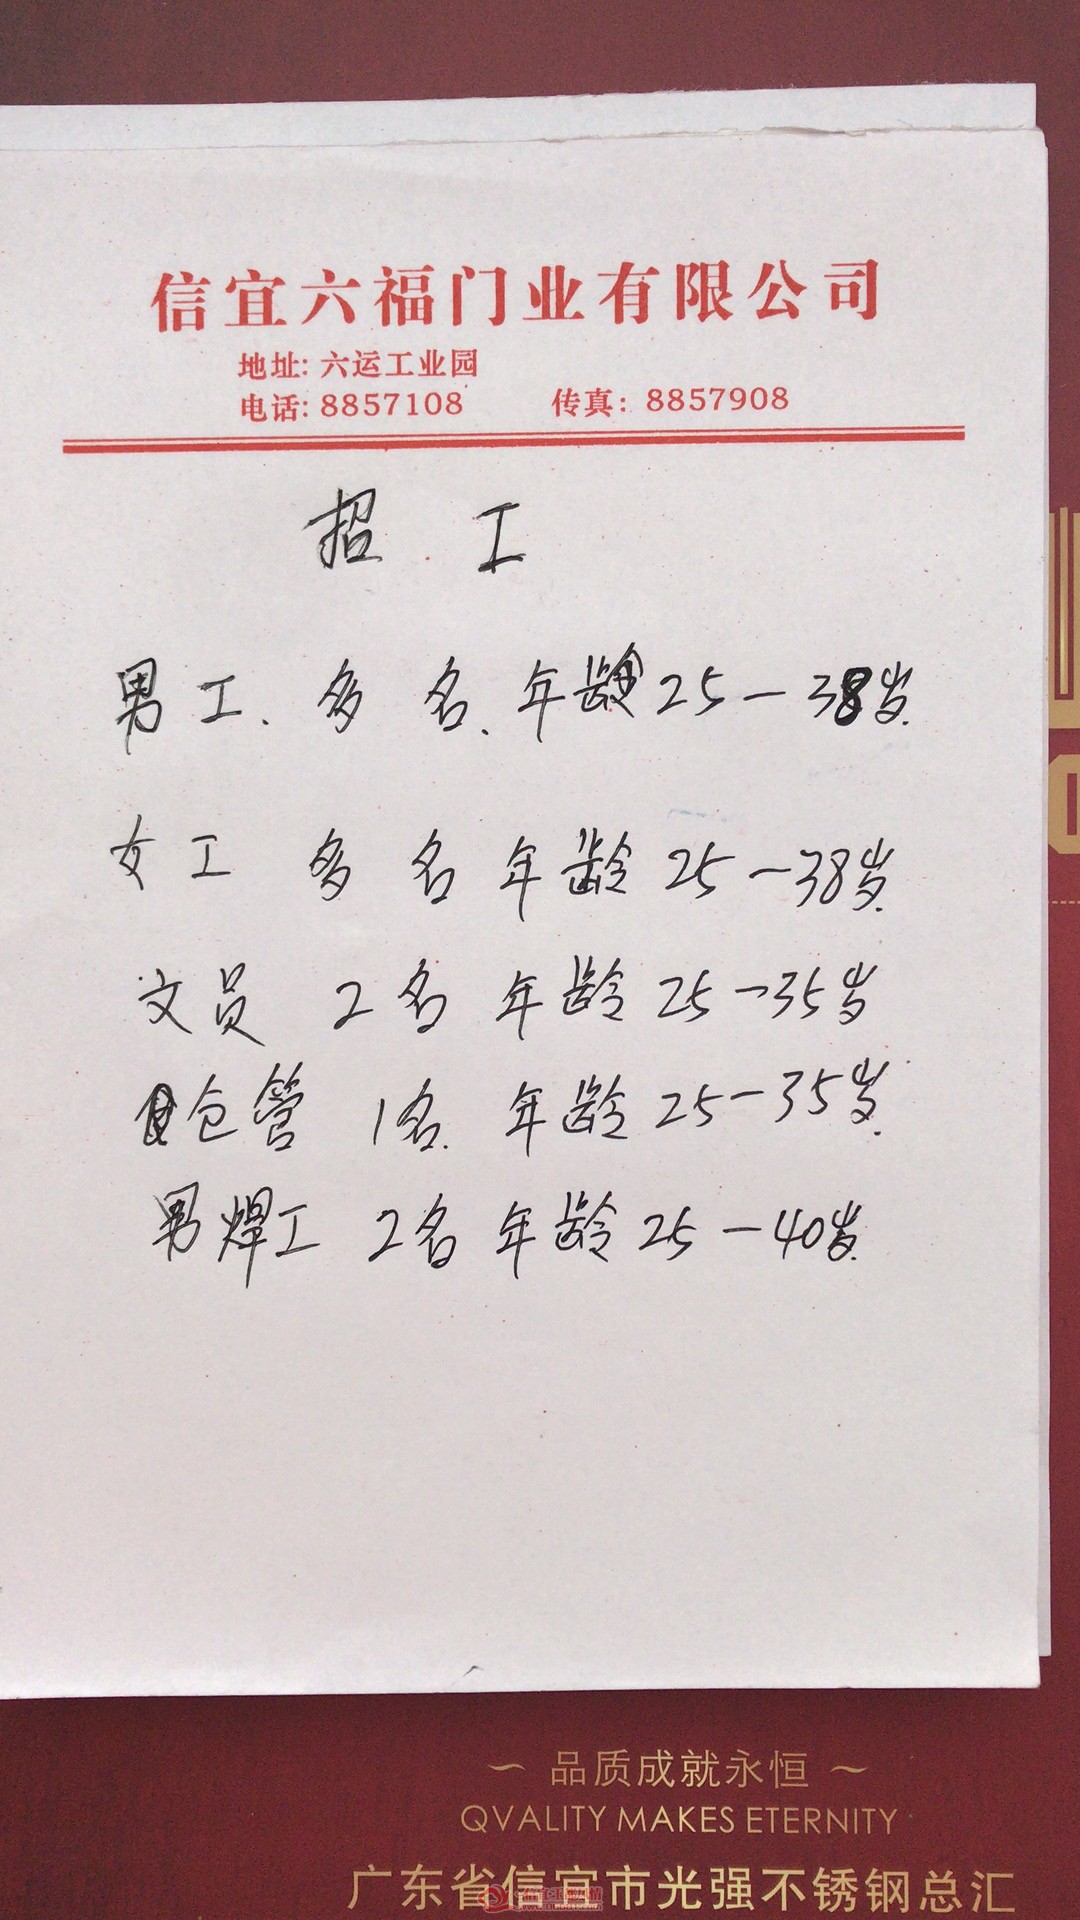 信宜六福门业有限公司
地址: 六运工业园
电话: 8857108 传真: 8857908
招 工
男工、多名、年龄25—38岁.
女工 多名 年龄 25—38岁.
文员 2名 年龄 25—35岁
仓管 1名. 年龄 25—35岁.
男焊工 2名 年龄 25—40岁.
~ 品质成就永恒 ~
QVALITY MAKES ETERNITY
广东省信宜市光强不锈钢总汇